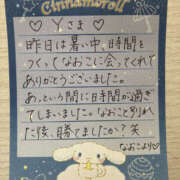 Cinnamoroll
♡ Yさま ♡
昨日は暑い中、時間を
つくってなおこに会ってくれて
ありがとうございました。
あっという間に日時間が過ぎ
てしまいました。なおことお別れし
た後、勝てましたか？笑
なおこより♡